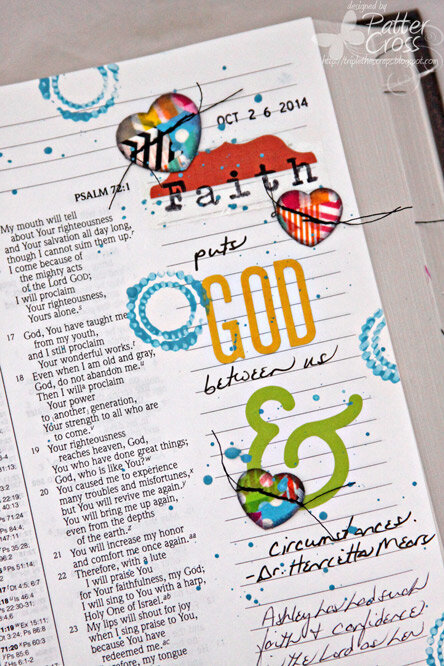 designed by
Patter
Cross
OCT 2 6 2014
PSALM 72:1
Faith
puts
GOD
between us
&
Circumstances.
-Dr. Henrietta Mears
Ashley
faith & confidence
the Lord as her
My mouth will tell
about Your righteousness
and Your salvation all day long,
though I cannot sum them up.
I come because of
the mighty acts
of the Lord GOD;
I will proclaim
Your righteousness,
Yours alone.
17 God, You have taught me
from my youth,
and I still proclaim
Your wonderful works.
18 Even when I am old and gray,
God, do not abandon me.
Then I will proclaim
Your power
to another generation,
Your strength to all who are
to come.
19 Your righteousness
reaches heaven, God,
You who have done great things;
God, who is like You?
20 You caused me to experience
many troubles and misfortunes,
but You will revive me again.
You will bring me up again,
even from the depths
of the earth.
21 You will increase my honor
and comfort me once again.
22 Therefore, with a lute
I will praise You
for Your faithfulness, my God;
I will sing to You with a harp,
Holy One of Israel.
23 My lips will shout for joy
when I sing praise to You,
because You have
redeemed me.
my tongue